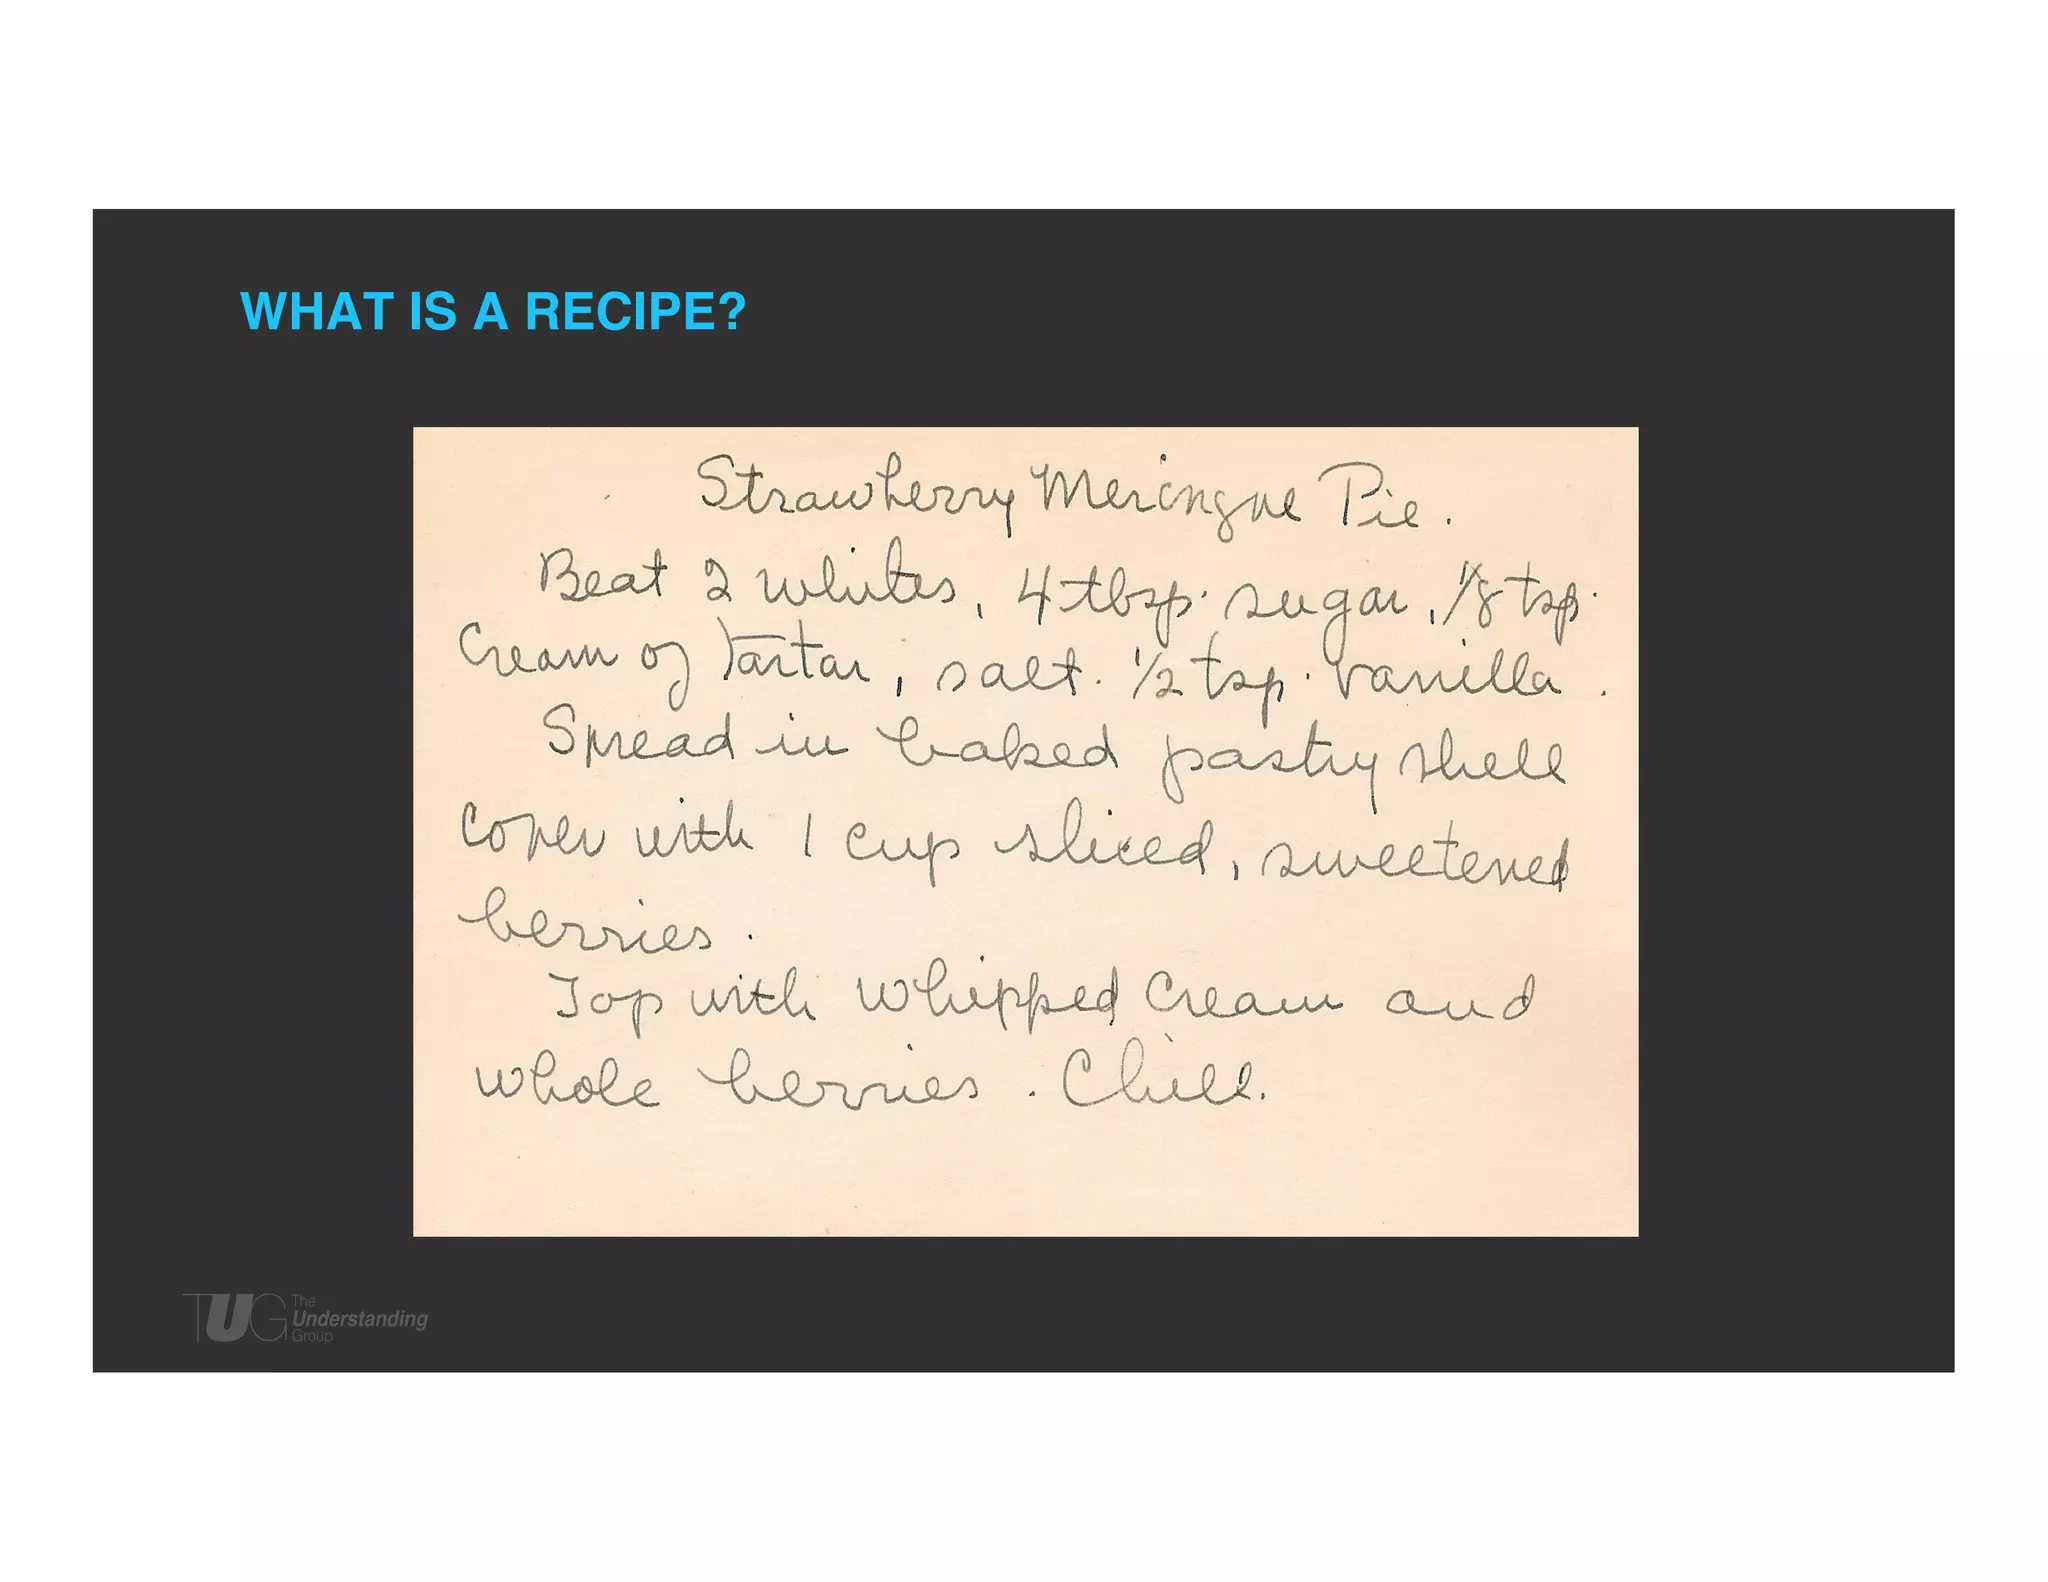 WHAT IS A RECIPE?
Strawberry Meringue Pie.
Beat 2 whites, 4 tbsp. sugar, 1/8 tsp.
Cream of tartar, salt. 1/2 tsp. vanilla.
Spread in baked pastry shell
cover with 1 cup sliced, sweetened
berries.
Top with whipped cream and
whole berries. Chill.
TUG The
Understanding
Group